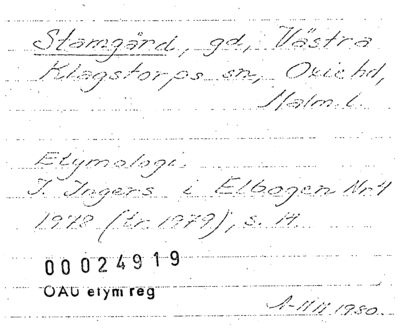 Stamgård, gd, Västra
Klagstorps sn, Oxie hd,
Malm. l.
Etymologi.
I. Ingers i Elbogen Nr 4
1978 (tr. 1979), s. 14.
00024919
OAU etym reg
1980.